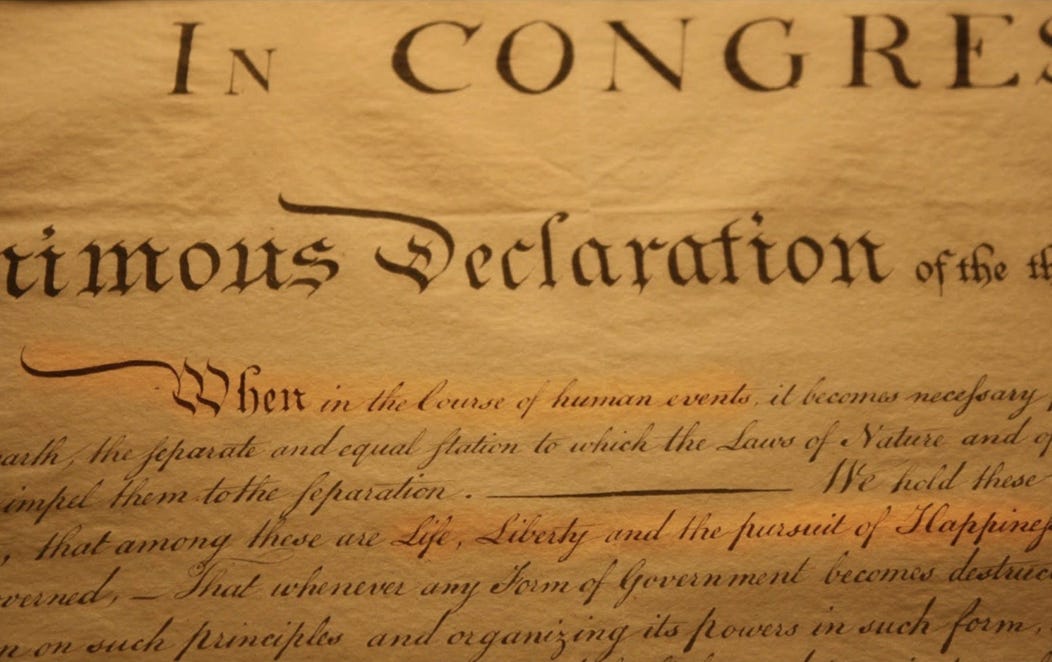 In CONGRES
nimous Declaration of the th
When in the Course of human events, it becomes neceſsary
earth, the ſeparate and equal ſtation to which the Laws of Nature and of
impel them to the ſeparation. ——— We hold these
, that among these are Life, Liberty and the pursuit of Happineſs
overned, — That whenever any Form of Government becomes destruc
n on such principles and organizing its powers in such form,